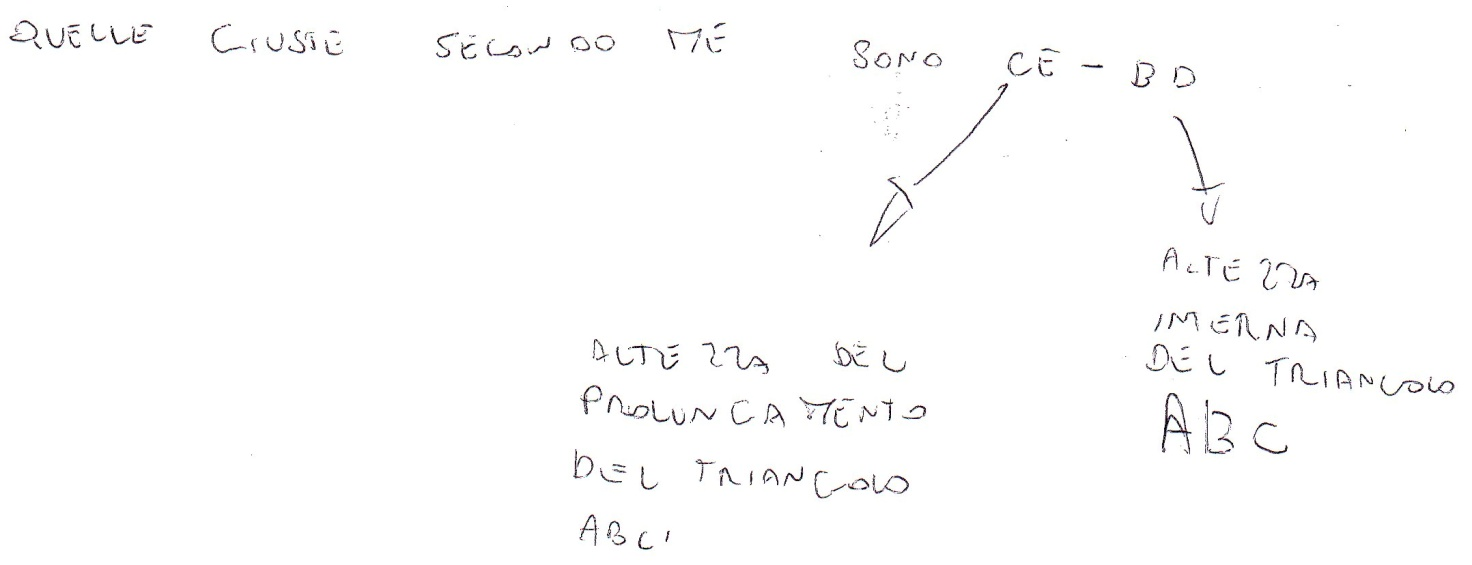 QUELLE GIUSTE SECONDO ME SONO CE - BD
ALTEZZA DEL
PROLUNGAMENTO
DEL TRIANGOLO
ABC
ALTEZZA
INTERNA
DEL TRIANGOLO
ABC